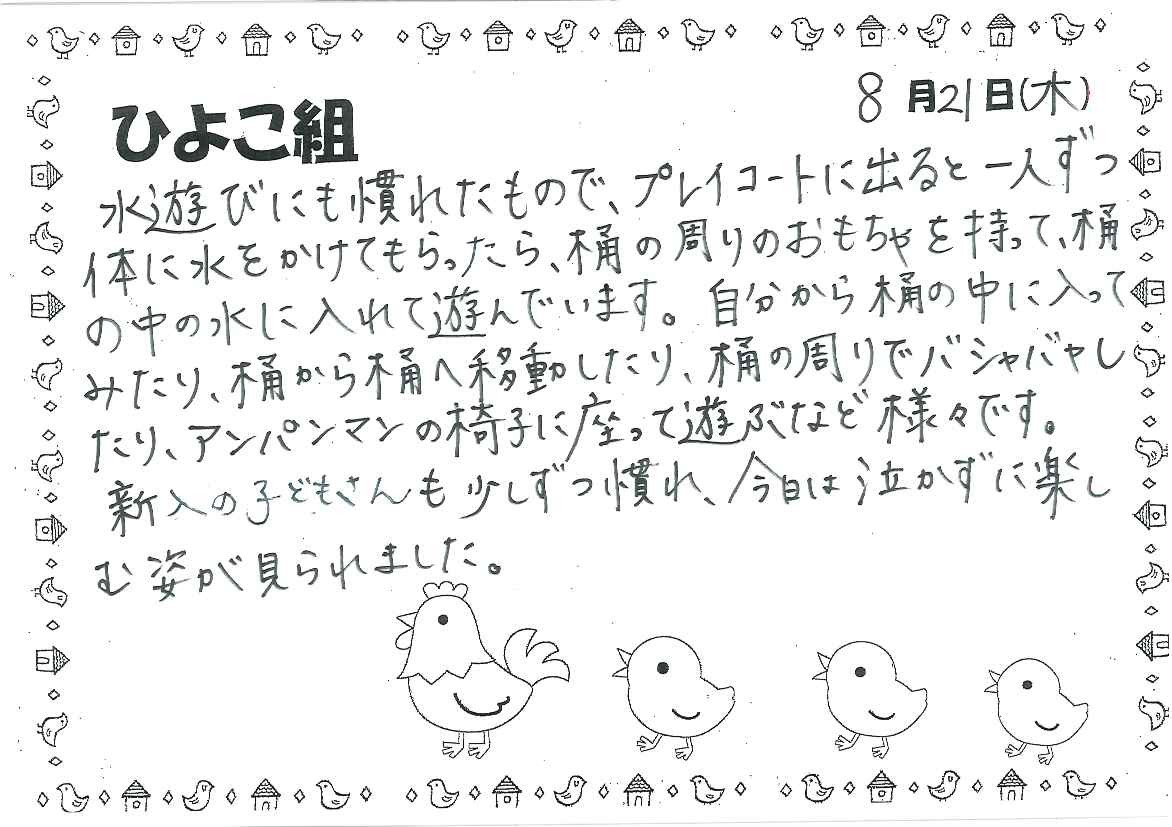 8月21日(木)
ひよこ組
水遊びにも慣れたもので、プレイコートに出ると一人ずつ
体に水をかけてもらったら、桶の周りのおもちゃを持って、桶
の中の水に入れて遊んでいます。自分から桶の中に入って
みたり、桶から桶へ移動したり、桶の周りでバシャバャし
たり、アンパンマンの椅子に座って遊ぶなど様々です。
新入の子どもさんも少しずつ慣れ、今日は泣かずに楽し
む姿が見られました。